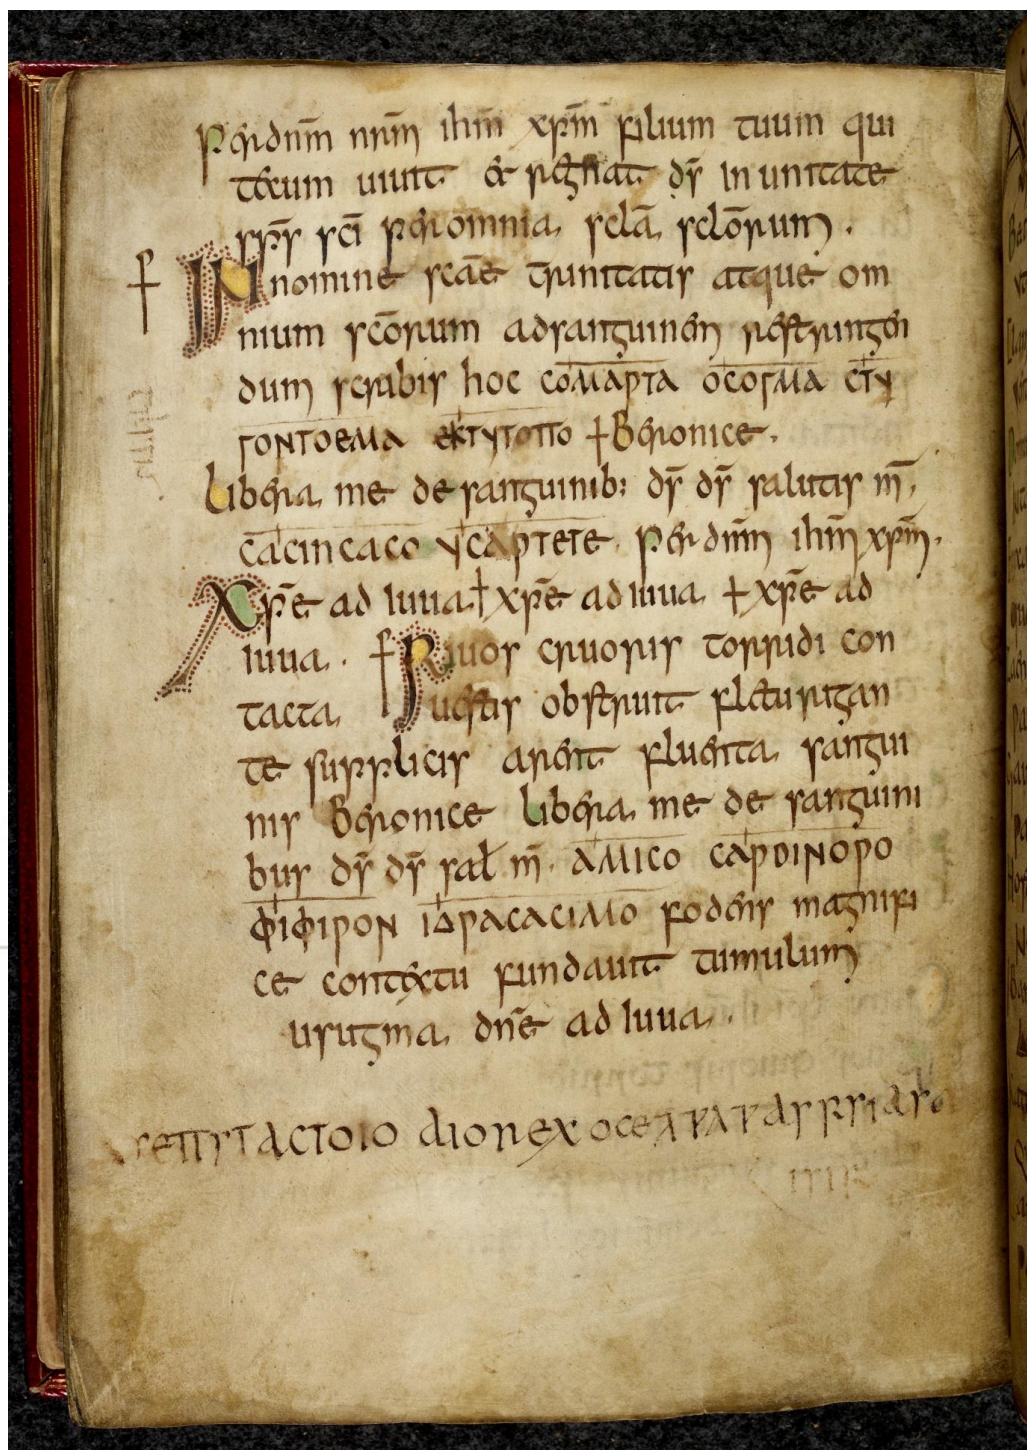 per dnm̄ nrm̄ ihm̄ xpm̄ filium tuum qui
tecum uiuit et regnat ds̄ in unitate
sp̄s sc̄i per omnia sclā sclōrum .
† IN nomine sc̄ae trinitatis atque om
nium sc̄orum ad sanguinem restringen
dum scribis hoc COMAPTA OCOΓMA CTY
ΓONTOEMA EKTYTOΠO † Beronice .
Libera me de sanguinib: ds̄ ds̄ salutis m̄ .
CACINCACO YCAPTETE . per dnm̄ ihm̄ xpm̄ .
Xp̄e ad iuua † xp̄e ad iuua † xp̄e ad
iuua . † Riuos cruoris torridi con
tacta uestis obstruit fletu rigan
te supplicis arent fluenta sangui
nis Beronice Libera me de sangui ni
bus ds̄ ds̄ sal m̄ . AMICO CAPDINOPO
ΦIΦIPON IΔPACACIMO fodens magnifi
ce contextu fundauit tumulum
usugma dn̄e ad iuua .